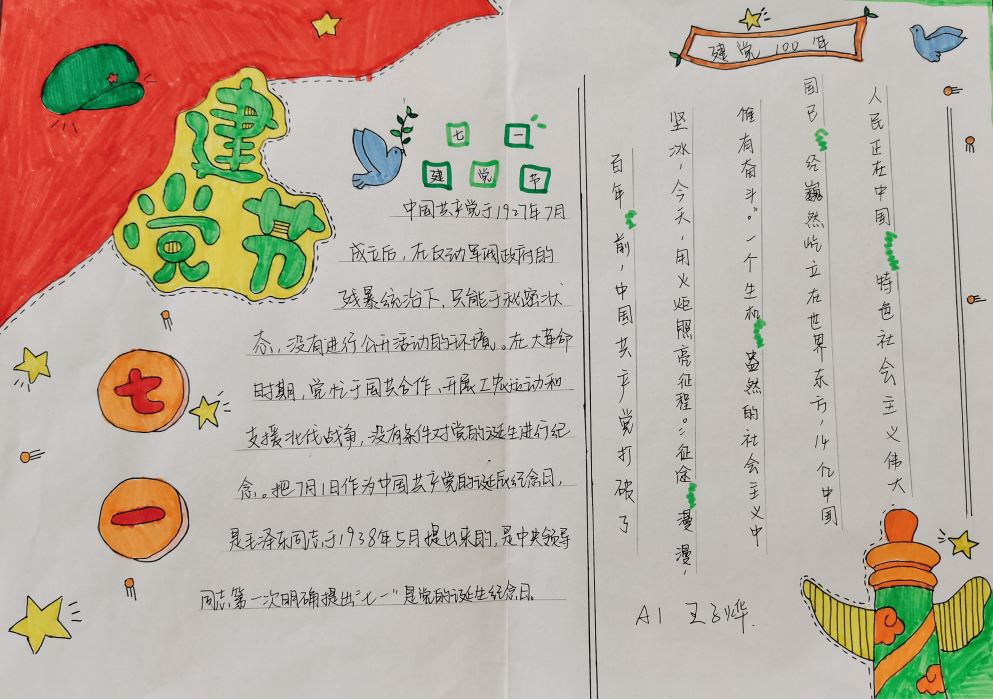 建党节
七一
七一
建党节
中国共产党于1927年7月
成立后，在反动军阀政府的
残暴统治下，只能于秘密状
态，没有进行公开活动的环境。在大革命
时期，党忙于国共合作、开展工农运动和
支援北伐战争，没有条件对党的诞生进行纪
念。把7月1日作为中国共产党的诞辰纪念日，
是毛泽东同志于1938年5月提出来的，是中央领导
同志第一次明确提出"七一"是党的诞生纪念日
建党100年
人民正在中国特色社会主义伟大
国已经巍然屹立在世界东方，14亿中国
惟有奋斗。"一个生机盎然的社会主义中
坚冰，今天，用火炬照亮征程。"征途漫漫，
百年前，中国共产党打破了
A1 王子烨